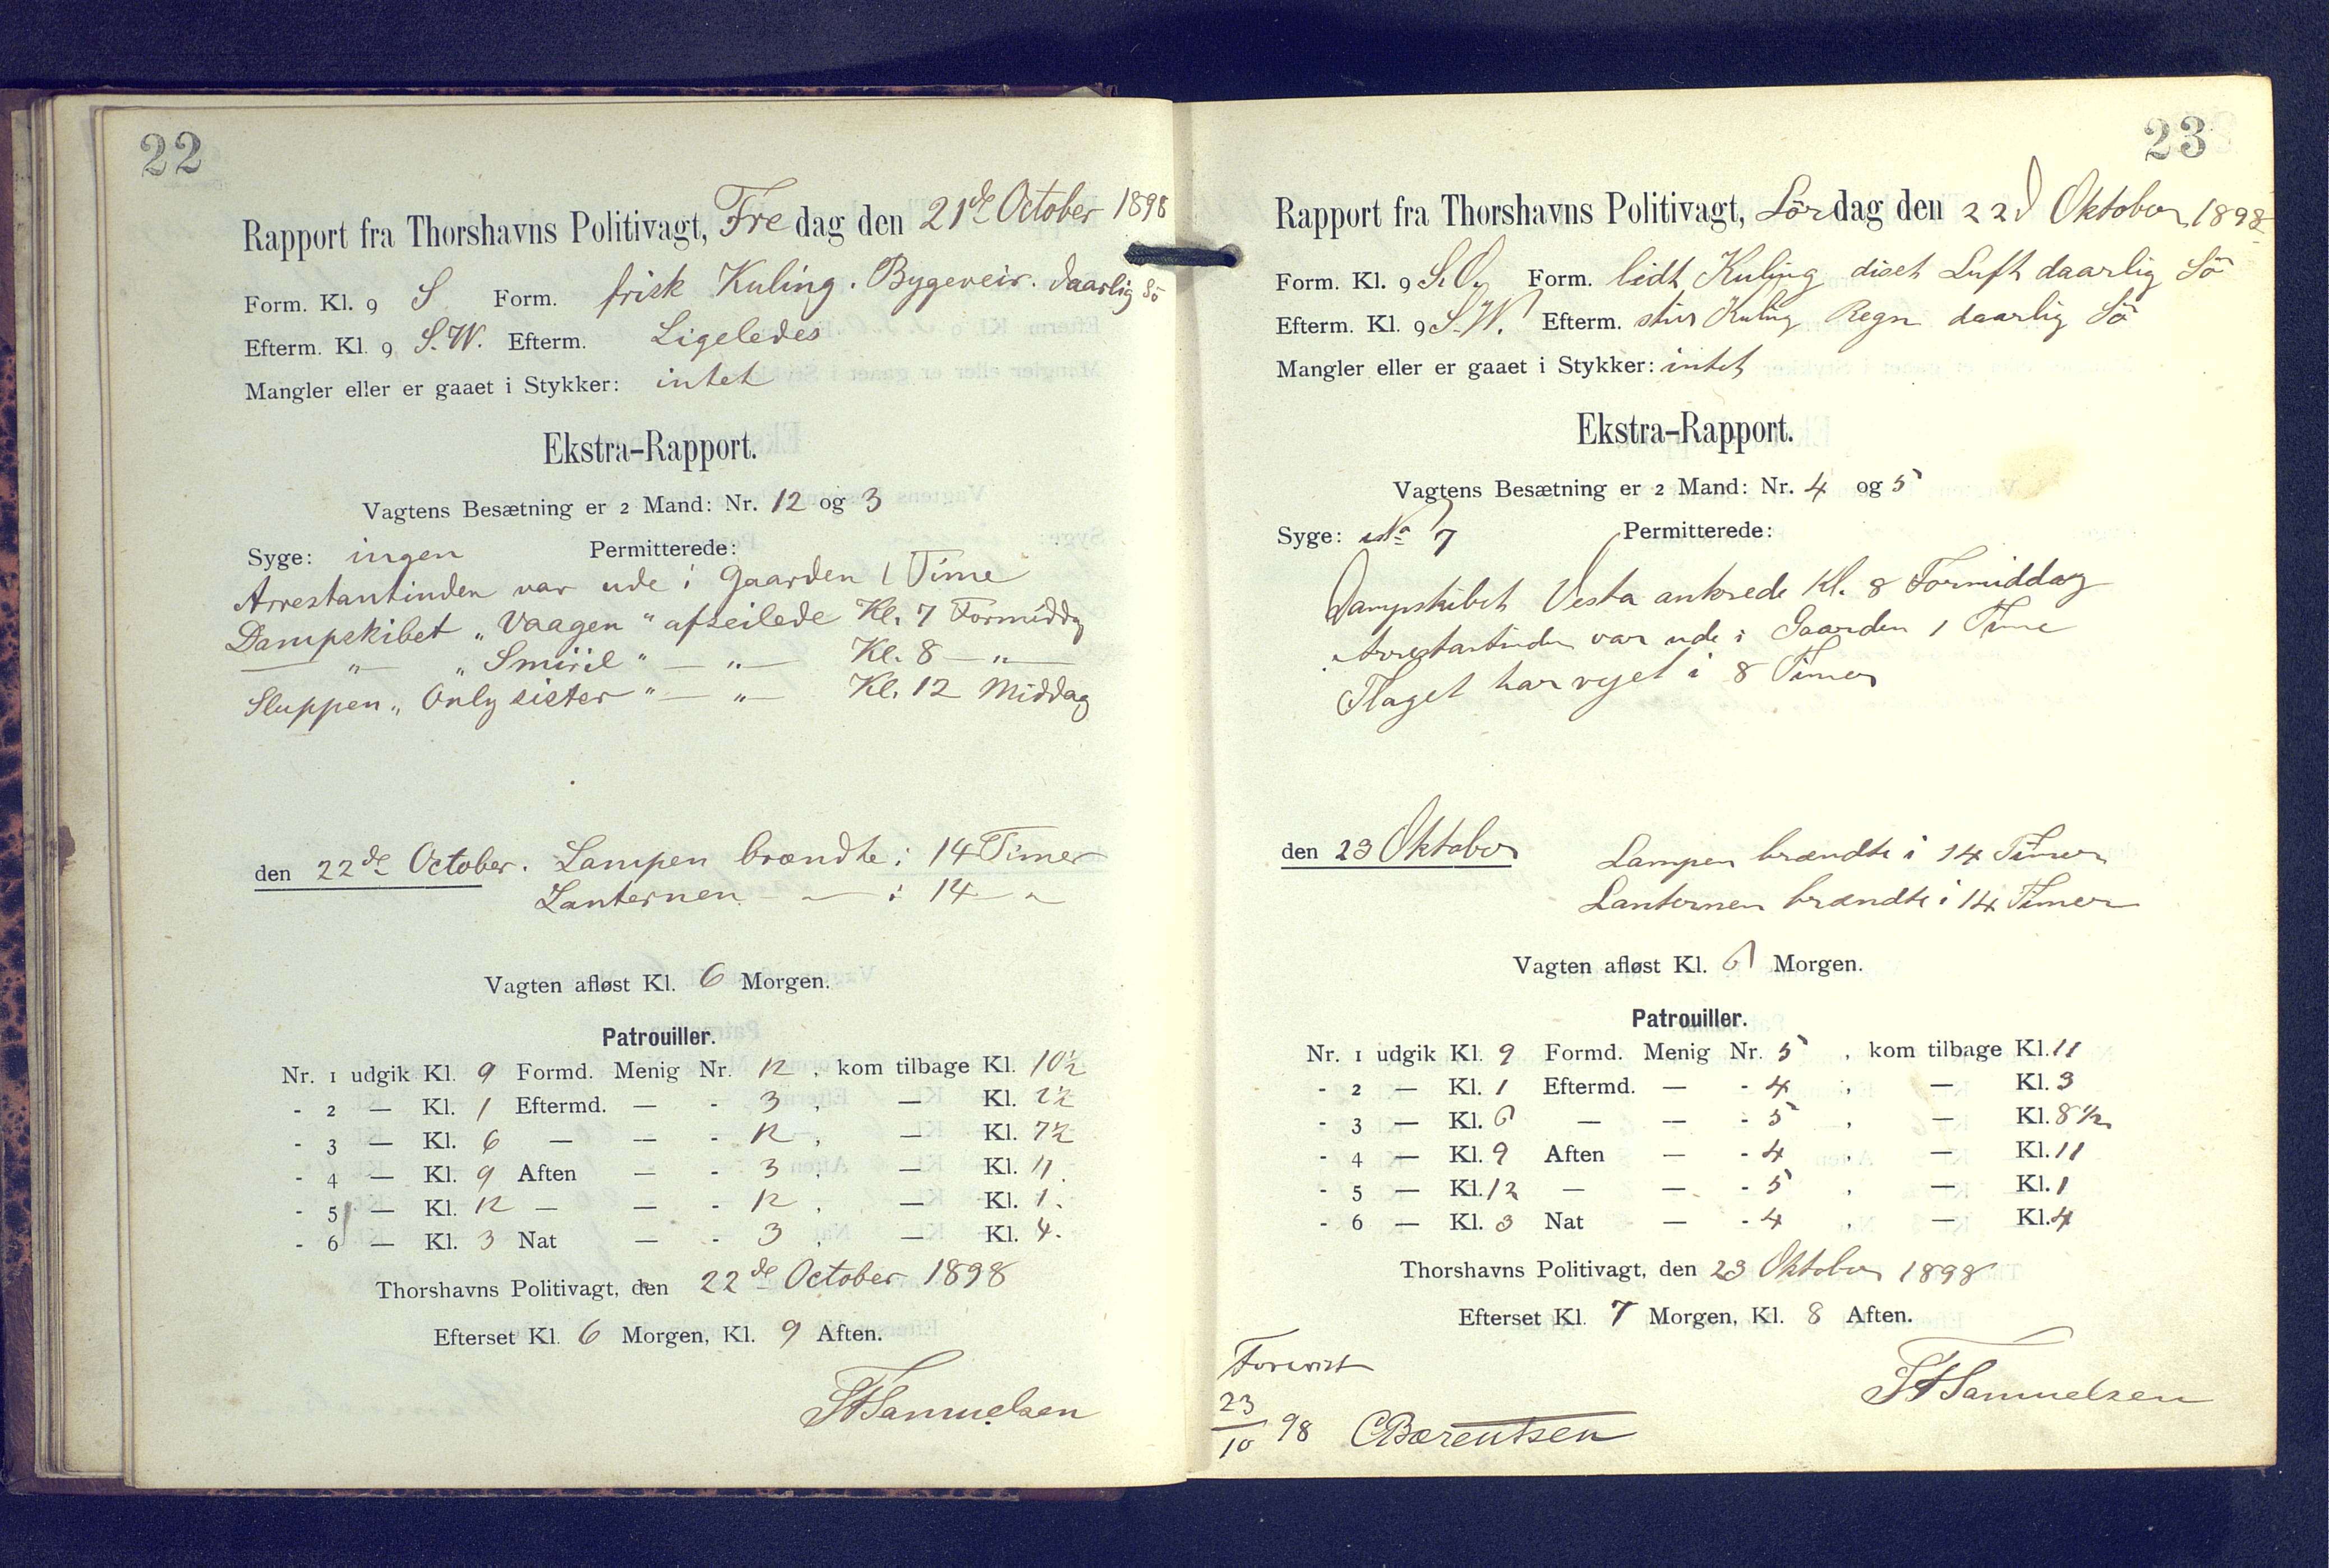 22
Rapport fra Thorshavns Politivagt, Fredag den 21de October 1898
Form. Kl. 9 S Form. frisk Kuling. Bygeveir. daarlig Sö
Efterm. Kl. 9 S.W. Efterm. Ligeledes
Mangler eller er gaaet i Stykker: intet
Ekstra-Rapport.
Vagtens Besætning er 2 Mand: Nr. 12 og 3
Syge: ingen Permitterede:
Arrestantinden var ude i Gaarden 1 Time
Dampskibet „Vaagen“ afseilede Kl. 7 Formiddg
— „ — „Smiril“ — „ — Kl. 8 — „ —
Sluppen „Only sister“ — „ — Kl. 12 Middag
den 22de October. Lampen brændte i 14 Timer
Lanternen — „ — i 14 „
Vagten afløst Kl. 6 Morgen.
Patrouiller.
Nr. 1 udgik Kl. 9 Formd. Menig Nr. 12, kom tilbage Kl. 10½
- 2 — Kl. 1 Eftermd. — - 3, — Kl. 2½
- 3 — Kl. 6 — — - 12, — Kl. 7½
- 4 — Kl. 9 Aften — - 3, — Kl. 11.
- 5 — Kl. 12 — — - 12, — Kl. 1.
- 6 — Kl. 3 Nat — - 3, — Kl. 4.
Thorshavns Politivagt, den 22de October 1898
Efterset Kl. 6 Morgen, Kl. 9 Aften.
Samuelsen
23
Rapport fra Thorshavns Politivagt, Lördag den 22d Oktober 1898
Form. Kl. 9 S.O. Form. lidt Kuling diset Luft daarlig Sö
Efterm. Kl. 9 S.W. Efterm. stiv Kuling Regn daarlig Sö
Mangler eller er gaaet i Stykker: intet
Ekstra-Rapport.
Vagtens Besætning er 2 Mand: Nr. 4 og 5
Syge: No 7 Permitterede:
Dampskibet Vesta ankrede Kl. 8 Formiddag
Arrestantinden var ude i Gaarden 1 Time
Flaget har vejet i 8 Timer
den 23 Oktober Lampen brændte i 14 Timer
Lanternen brændte i 14 Timer
Vagten afløst Kl. 6 Morgen.
Patrouiller.
Nr. 1 udgik Kl. 9 Formd. Menig Nr. 5, kom tilbage Kl. 11
- 2 — Kl. 1 Eftermd. — - 4, — Kl. 3
- 3 — Kl. 6 — — - 5, — Kl. 8½
- 4 — Kl. 9 Aften — - 4, — Kl. 11
- 5 — Kl. 12 — — - 5, — Kl. 1
- 6 — Kl. 3 Nat — - 4, — Kl. 4
Thorshavns Politivagt, den 23 Oktober 1898
Efterset Kl. 7 Morgen, Kl. 8 Aften.
Samuelsen
Forevist
23/10 98 CBærentsen